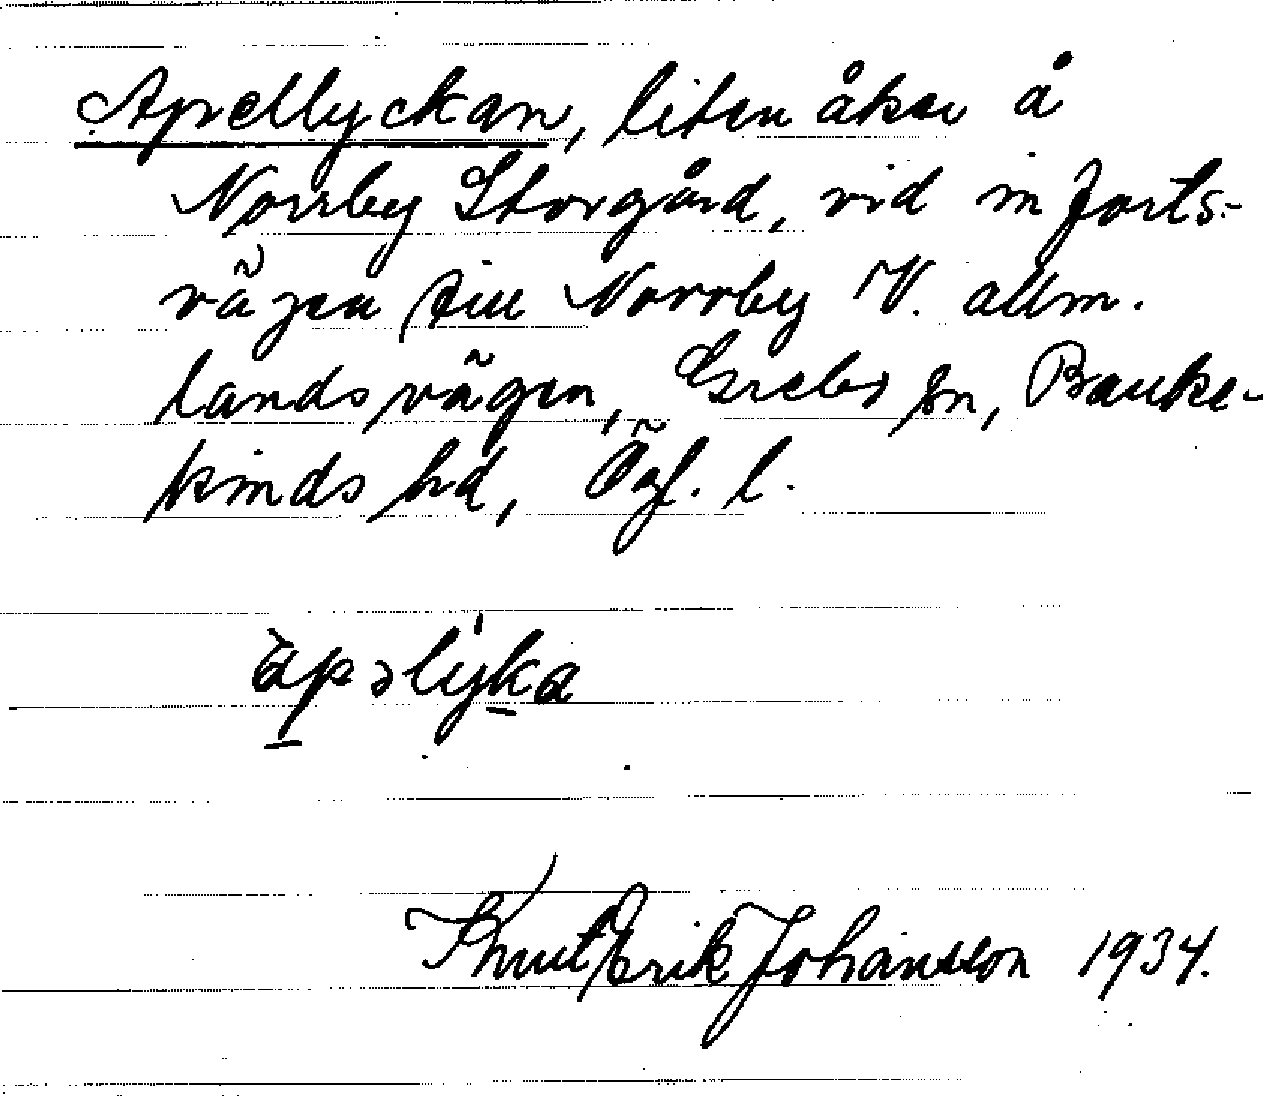 Apellyckan, liten åker å
Norrby Storgård, vid infarts-
vägen till Norrby V. allm.
landsvägen, Grebo sn, Banke-
kinds hd, Ögl. l.
àpəlýka
Knut Erik Johansson 1934.